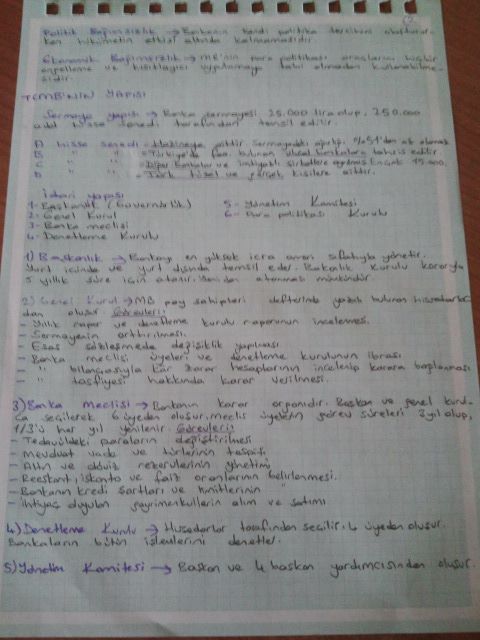 Politik Bağımsızlık → Bankanın kendi politika tercihini oluşturur-
ken hükümetin etkisi altında kalmamasıdır.
Ekonomik Bağımsızlık → MB'nin para politikası araçlarını hiçbir
engelleme ve kısıtlayıcı uygulamaya tabi olmadan kullanabilme-
sidir.
TCMB'NİN YAPISI
Sermaye yapısı → Banka sermayesi 25.000 lira olup, 250.000
adet hisse senedi tarafından temsil edilir.
A hisse senedi = Hazineye aittir Sermayedeki ağırlığı %51'den az olamaz
B " " = Türkiye'de faal. bulunan ulusal bankalara tahsis edilir.
C " " = Diğer Bankalar ve imtiyazlı şirketlere ayrılmış En çok 15.000.
D " " = Türk tüzel ve gerçek kişilere aittir.
İdari yapısı
1- Başkanlık (Guvernörlük) 5- Yönetim Komitesi
2- Genel Kurul 6- Para politikası Kurulu
3- Banka meclisi
4- Denetleme Kurulu
1) Başkanlık → Bankayı en yüksek icra amiri sıfatıyla yönetir.
Yurt içinde ve yurt dışında temsil eder. Bakanlık Kurulu kararıyla
5 yıllık süre için atanır. Yeniden atanması mümkündür.
2) Genel Kurul → MB pay sahipleri defterinde yazılı bulunan hissedarlar-
dan oluşur. Görevleri:
- Yıllık rapor ve denetleme kurulu raporunun incelenmesi.
- Sermayenin arttırılması.
- Esas sözleşmede değişiklik yapılması
- Banka meclisi üyeleri ve denetleme kurulunun ibrası
- " bilançosuyla kar zarar hesaplarının incelenip karara bağlanması
- " tasfiyesi hakkında karar verilmesi.
3) Banka Meclisi → Bankanın karar organıdır. Başkan ve genel kurul-
ca seçilerek 6 üyeden oluşur. meclis üyelerin görev süreleri 3 yıl olup,
1/3'ü her yıl yenilenir. Görevleri:
- Tedavüldeki paraların değiştirilmesi
- Mevduat vade ve türlerinin tespiti
- Altın ve döviz rezervlerinin yönetimi
- Reeskont, iskonto ve faiz oranlarının belirlenmesi.
- Bankanın kredi şartları ve limitlerinin "
- İhtiyaç duyulan gayrimenkullerin alım ve satımı
4) Denetleme Kurulu → Hissedarlar tarafından seçilir. 4 üyeden oluşur.
Bankaların bütün işlevlerini denetler.
5) Yönetim Komitesi → Başkan ve 4 başkan yardımcısından oluşur.